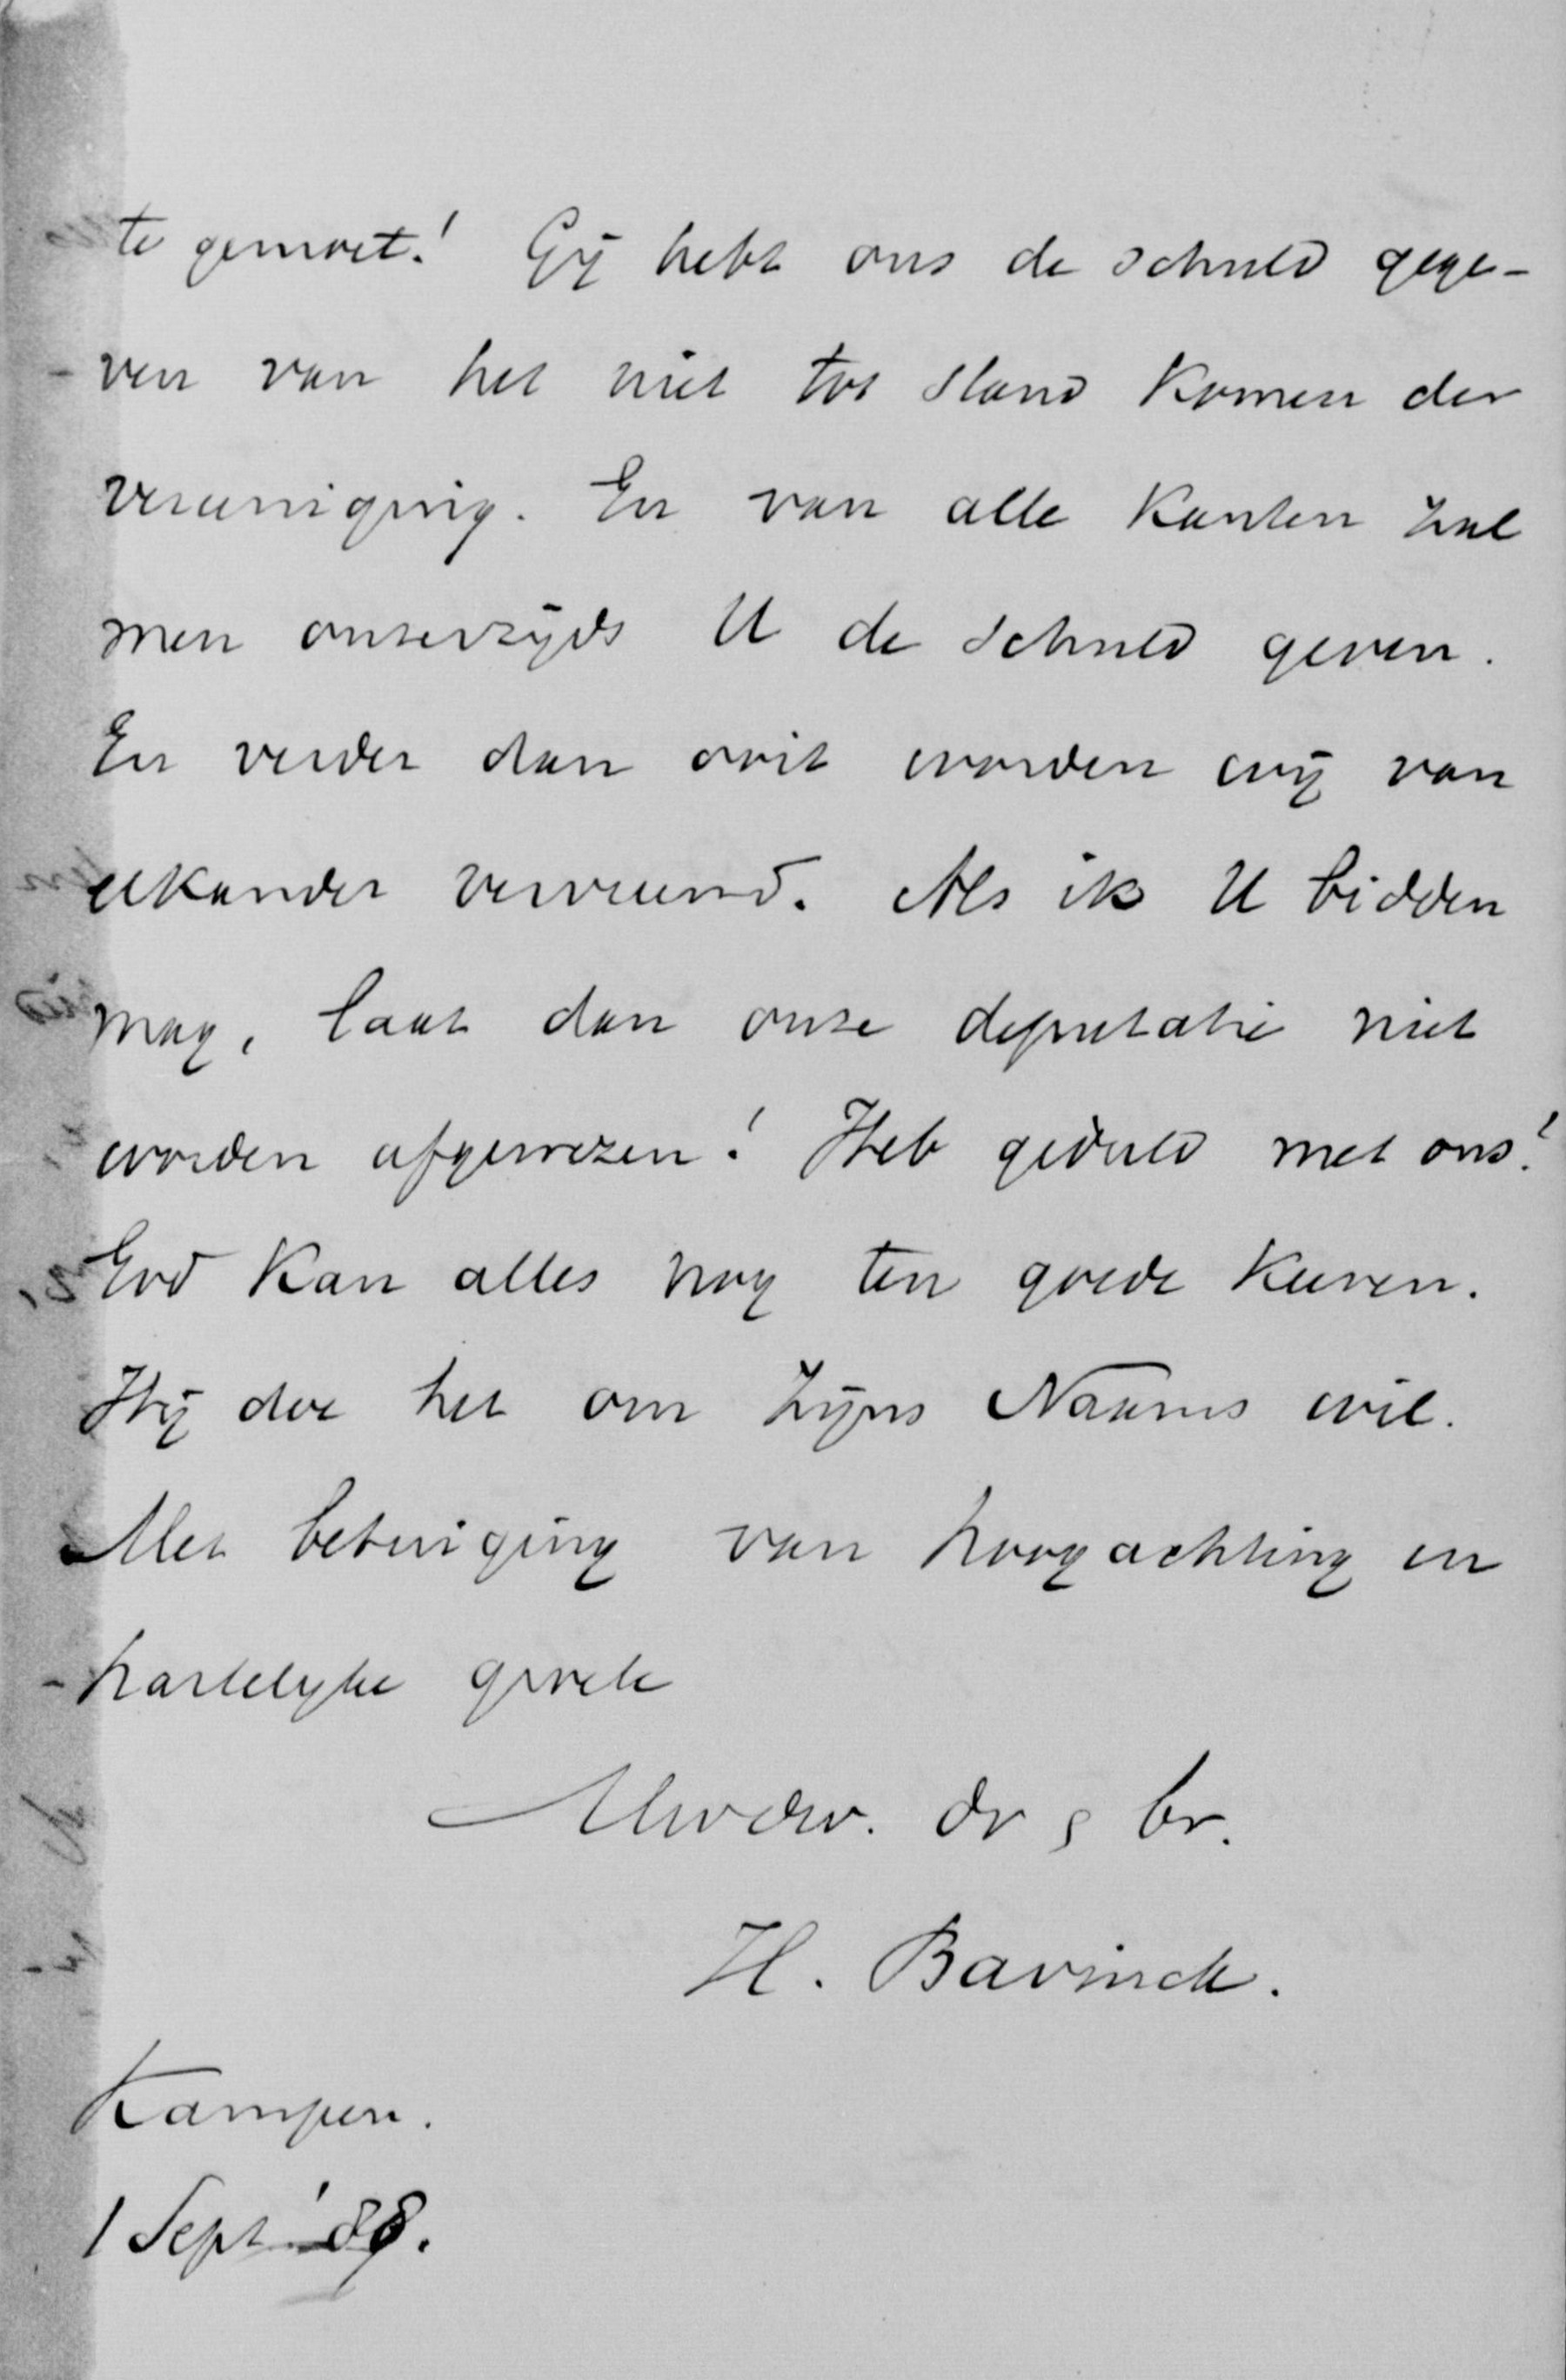 te gemoet! Gij hebt ons de schuld gege-
ven van het niet tot stand komen der
vereeniging. En van alle kanten zal
men onzerzijds U de schuld geven.
En verder dan ooit worden wij van
elkander vervreemd. Als ik U bidden
mag, laat dan onze deputatie niet
worden afgewezen! Heb geduld met ons!
God kan alles nog ten goede keeren.
Hij doe het om Zijns Naams wil.
Met betuiging van hoogachting en
hartelijke groete
Uwdw. dr & br.
H. Bavinck.
Kampen.
1 Sept '88.